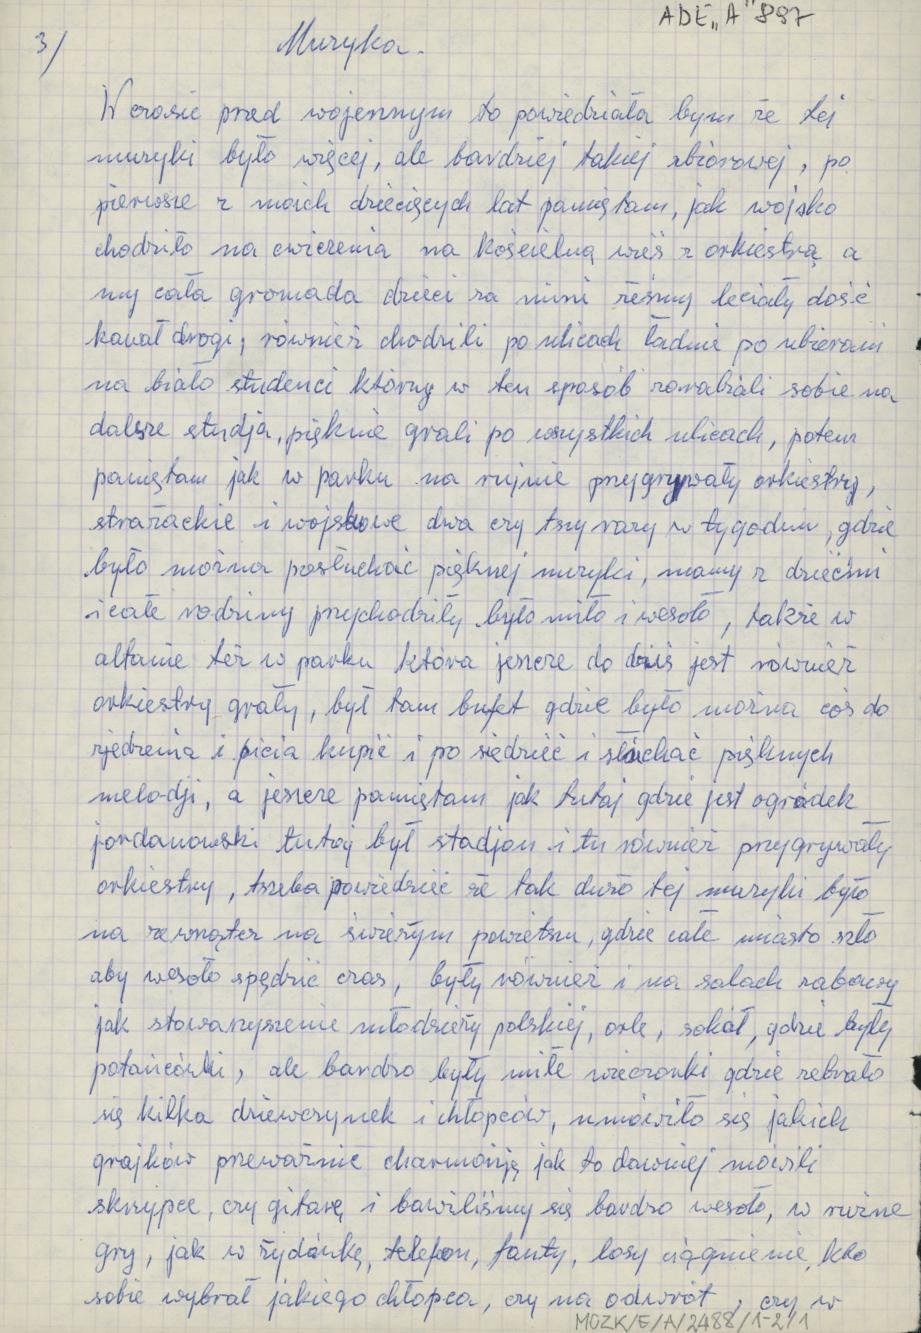 ADE „A" 897
3/ Muzyka.
W czasie przed wojennym to powiedziała bym że tej
muzyki było więcej, ale bardziej takiej zbiorowej, po
pierwsze z moich dziecięcych lat pamiętam, jak wojsko
chodziło na cwiczenia na kościelną wieś z orkiestrą a
my cała gromada dzieci za nimi żeśmy leciały dość
kawał drogi, również chodzili po ulicach ładnie po ubierani
na biało studenci którzy w ten sposób zarabiali sobie na
dalsze studja, pięknie grali po wszystkich ulicach, potem
pamiętam jak w parku na rujnie przygrywały orkiestry,
strażackie i wojskowe dwa czy trzy razy w tygodniu, gdzie
było można posłuchać pięknej muzyki, mamy z dziećmi
i całe rodziny przychodziły było miło i wesoło, także w
altanie też w parku która jeszcze do dziś jest również
orkiestry grały, był tam bufet gdzie było można coś do
zjedzenia i picia kupić i po siedzieć i słuchać pięknych
melodji, a jeszcze pamiętam jak tutaj gdzie jest ogródek
jordanowski tutaj był stadjon i tu również przygrywały
orkiestry, trzeba powiedzieć że tak dużo tej muzyki było
na zewnątrz na świeżym powietrzu, gdzie całe miasto szło
aby wesoło spędzić czas, były również i na salach zabawy
jak stowarzyszenie młodzieży polskiej, orle, sokół, gdzie były
potańcówki, ale bardzo były miłe wieczorki gdzie zebrało
się kilka dziewczynek i chłopców, umówiło się jakich
grajków przeważnie charmonją jak to dawniej mówili
skrzypce, czy gitarę i bawiliśmy się bardzo wesoło, w rużne
gry, jak w żydówkę, telefon, fanty, losy ciągnienie, kto
sobie wybrał jakiego chłopca, czy na odwrót, czy w
MOZK/E/A/2488/1-2/1